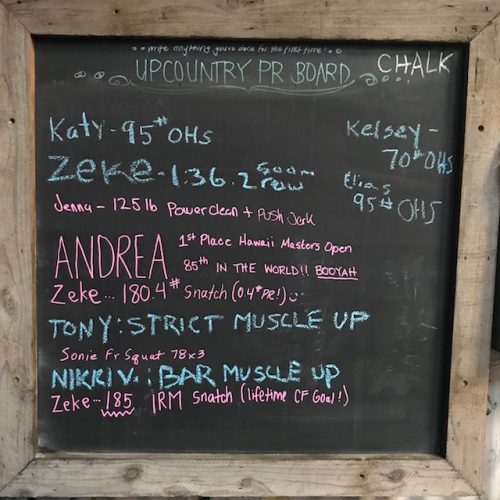 write anything you've done for the first time!
UPCOUNTRY PR BOARD
CHALK
Katy - 95# OHS
Zeke - 1:36.2 500m row
Jenna - 125 lb Power clean + Push Jerk
ANDREA 1st Place Hawaii Masters Open
85th IN THE WORLD!! BOOYAH
Zeke... 180.4# Snatch (0.4# PR!)
TONY: STRICT MUSCLE UP
Sonie Fr Squat 78x3
NIKKI V.: BAR MUSCLE UP
Zeke... 185 1RM Snatch (lifetime CF Goal!)
Kelsey -
70# OHS
Elias
95# OHS